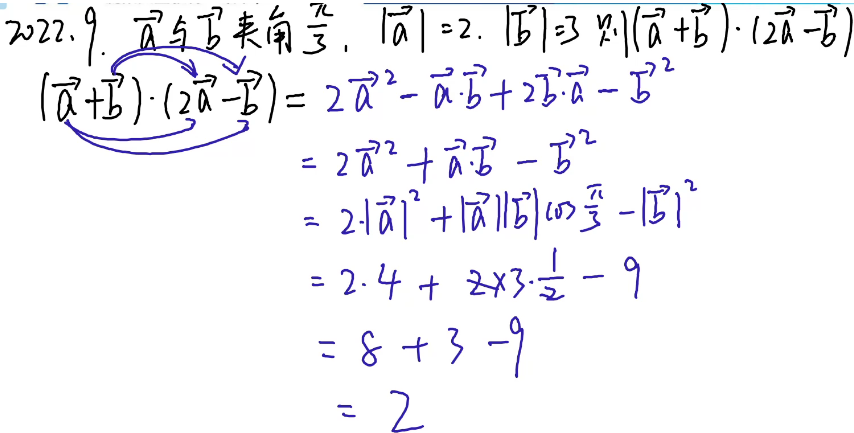 2022.9. a⃗与b⃗夹角π/3. |a⃗|=2. |b⃗|=3 则(a⃗+b⃗)·(2a⃗-b⃗)
(a⃗+b⃗)·(2a⃗-b⃗)= 2a⃗² - a⃗·b⃗ + 2b⃗·a⃗ - b⃗²
= 2a⃗² + a⃗·b⃗ - b⃗²
= 2·|a⃗|² + |a⃗||b⃗|cos π/3 - |b⃗|²
= 2·4 + 2×3·1/2 - 9
= 8 + 3 - 9
= 2